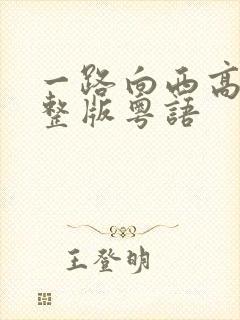 一路向西高
整版粤語
王登明